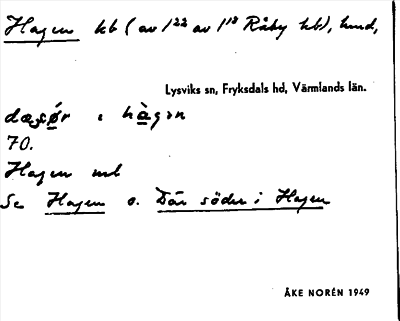 Hagen kb (av 1²² av 1¹³ Råby kb), hmd,
Lysviks sn, Fryksdals hd, Värmlands län.
hàgən
70.
Hagen
Se Hagen o. Där söder i Hagen
ÅKE NORÉN 1949